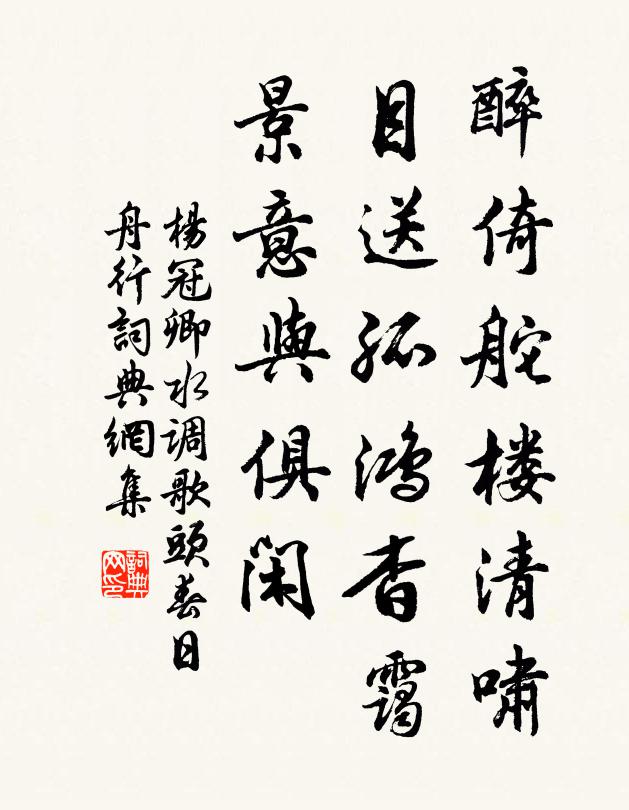 醉倚舵楼清啸
目送孤鸿杳霭
景意與俱闲
楊冠卿水调歌頭春日
舟行詞典網集
詞典网印